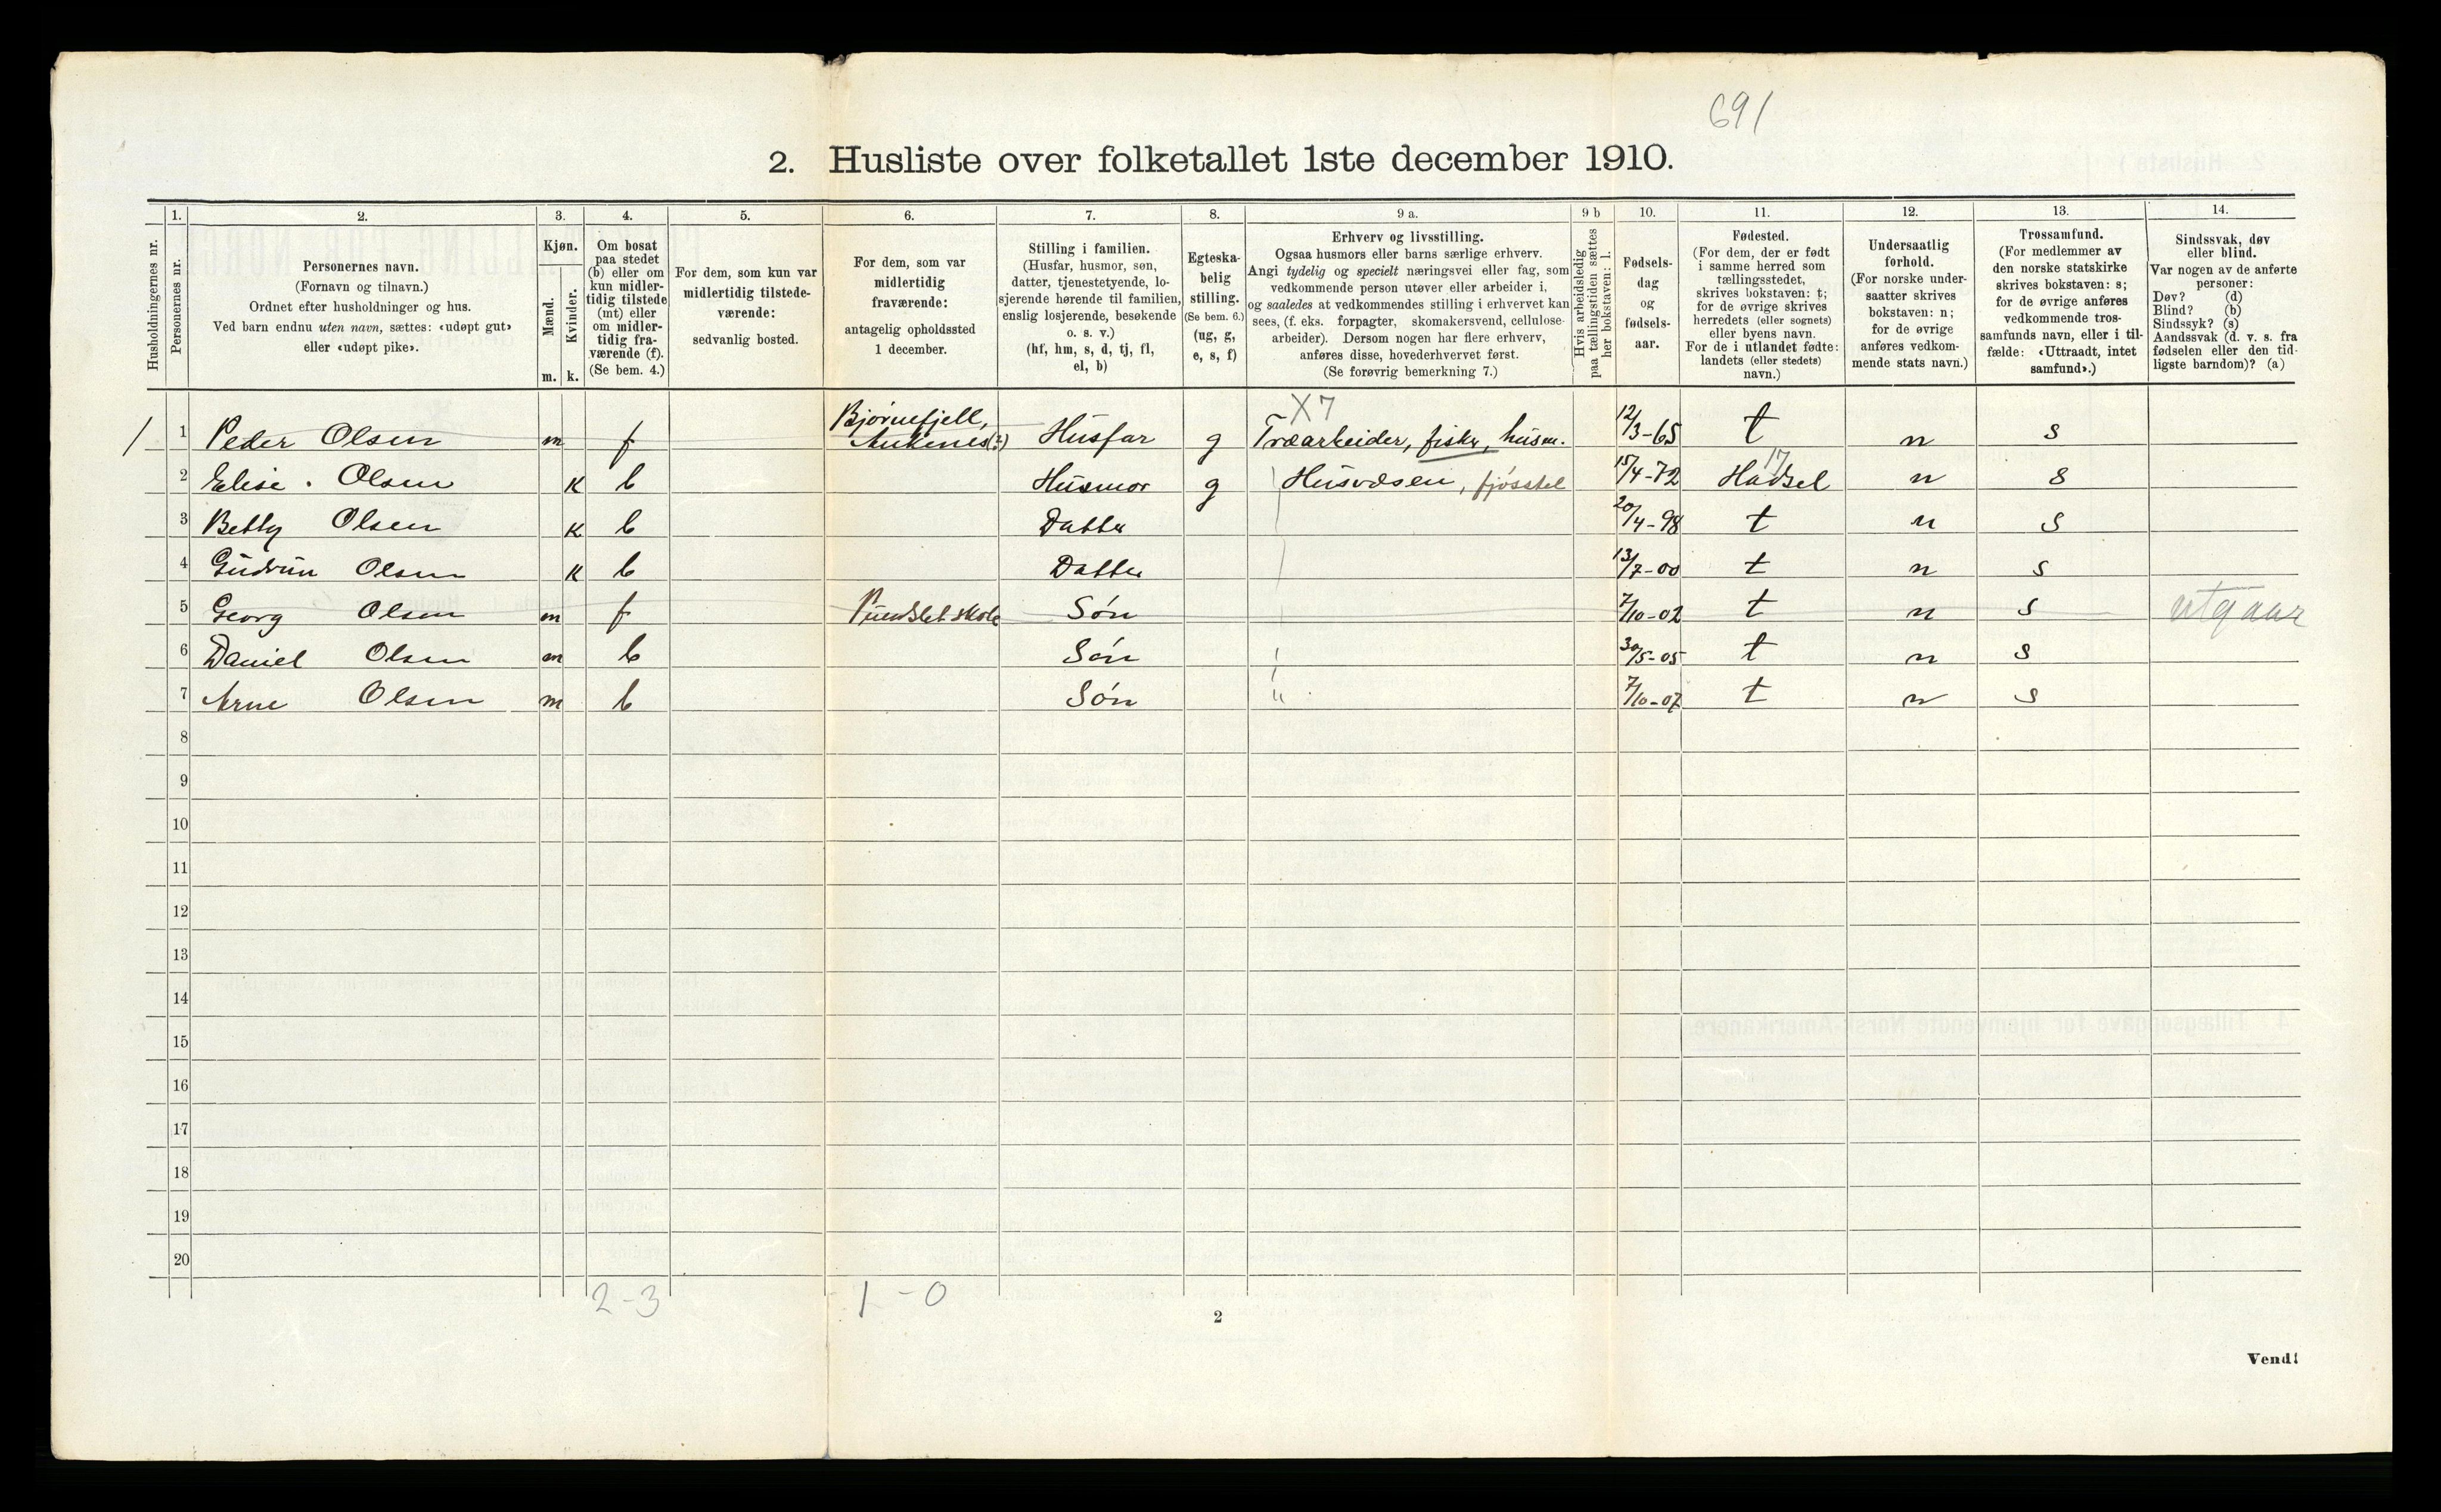 691
2. Husliste over folketallet 1ste december 1910.
Husholdningernes nr.
1.
Personernes nr.
2.
Personernes navn.
(Fornavn og tilnavn.)
Ordnet efter husholdninger og hus.
Ved barn endnu uten navn, sættes: «udøpt gut»
eller «udøpt pike».
3.
Kjøn.
Mænd.
Kvinder.
m. k.
4.
Om bosat
paa stedet
(b) eller om
kun midler-
tidig tilstede
(mt) eller
om midler-
tidig fra-
værende (f).
(Se bem. 4.)
5.
For dem, som kun var
midlertidig tilstede-
værende:
sedvanlig bosted.
6.
For dem, som var
midlertidig
fraværende:
antagelig opholdssted
1 december.
7.
Stilling i familien.
(Husfar, husmor, søn,
datter, tjenestetyende, lo-
sjerende hørende til familien,
enslig losjerende, besøkende
o. s. v.)
(hf, hm, s, d, tj, fl,
el, b)
8.
Egteska-
belig
stilling.
(Se bem. 6.)
(ug, g,
e, s, f)
9 a.
Erhverv og livsstilling.
Ogsaa husmors eller barns særlige erhverv.
Angi tydelig og specielt næringsvei eller fag, som
vedkommende person utøver eller arbeider i,
og saaledes at vedkommendes stilling i erhvervet kan
sees, (f. eks. forpagter, skomakersvend, cellulose-
arbeider). Dersom nogen har flere erhverv,
anføres disse, hovederhvervet først.
(Se forøvrig bemerkning 7.)
9 b
Hvis arbeidsledig
paa tællingstiden sættes
her bokstaven: l.
10.
Fødsels-
dag
og
fødsels-
aar.
11.
Fødested.
(For dem, der er født
i samme herred som
tællingsstedet,
skrives bokstaven: t;
for de øvrige skrives
herredets (eller sognets)
eller byens navn.
For de i utlandet fødte:
landets (eller stedets)
navn.)
12.
Undersaatlig
forhold.
(For norske under-
saatter skrives
bokstaven: n;
for de øvrige
anføres vedkom-
mende stats navn.)
13.
Trossamfund.
(For medlemmer av
den norske statskirke
skrives bokstaven: s;
for de øvrige anføres
vedkommende tros-
samfunds navn, eller i til-
fælde: «Uttraadt, intet
samfund».)
14.
Sindssvak, døv
eller blind.
Var nogen av de anførte
personer:
Døv? (d)
Blind? (b)
Sindssyk? (s)
Aandssvak (d. v. s. fra
fødselen eller den tid-
ligste barndom)? (a)
Bjørnefjell, X7
1 1 Peder Olsen m f Ankenes(?) Husfar g Træarbeider, fisker, husm. 12/3-65 t n s
17
2 Elise Olsen K b Husmor g Husvæsen, fjøsstel 15/4-72 Hadsel n s
3 Betty Olsen K b Datter 20/4-98 t n s
4 Gudrun Olsen K b Datter 13/7-00 t n s
5 Georg Olsen m f Pundslet skole Søn 7/10-02 t n s utgaar
6 Daniel Olsen m b Søn 30/5-05 t n s
7 Arne Olsen m b Søn " 7/10-07 t n s
8
9
10
11
12
13
14
15
16
17
18
19
20
2-3 1-0
2
Vend!